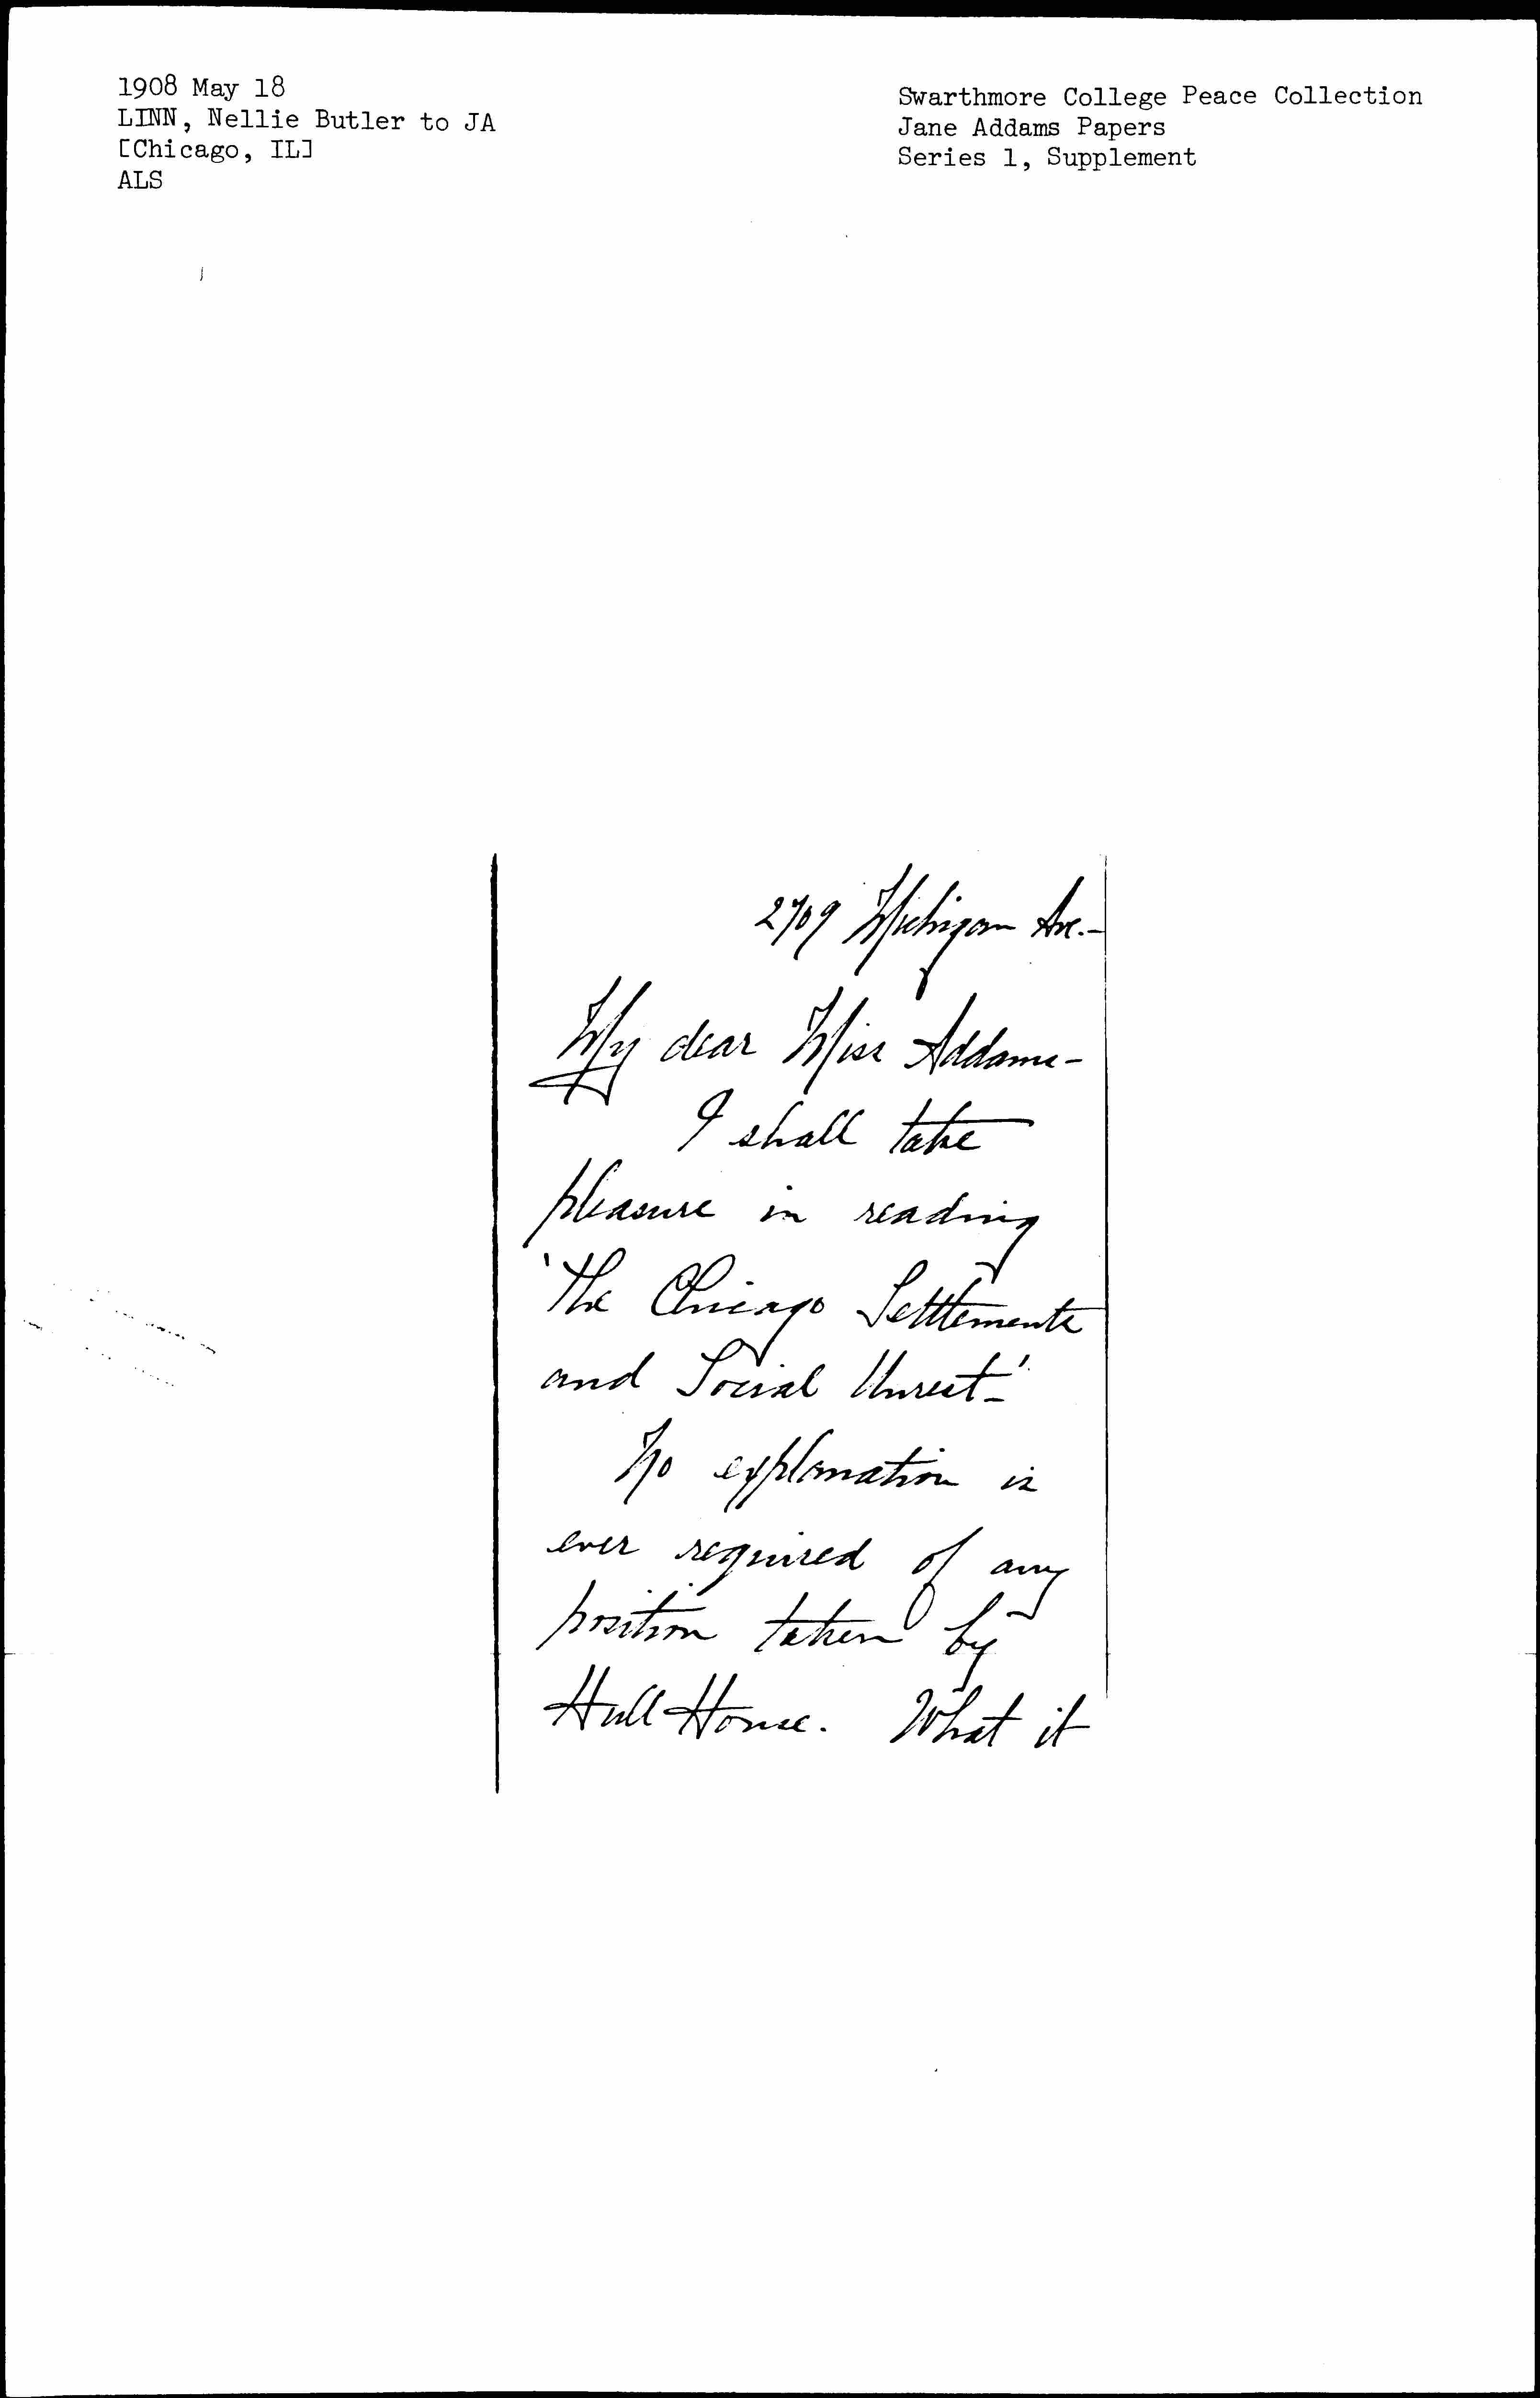 1908 May 18
LINN, Nellie Butler to JA
[Chicago, IL]
ALS
Swarthmore College Peace Collection
Jane Addams Papers
Series 1, Supplement
2709 Michigan Ave.-
My dear Miss Addams-
I shall take
pleasure in reading
'The Chicago Settlements
and Social Unrest'-
No explanation is
ever required of any
position taken by
Hull-House. What it